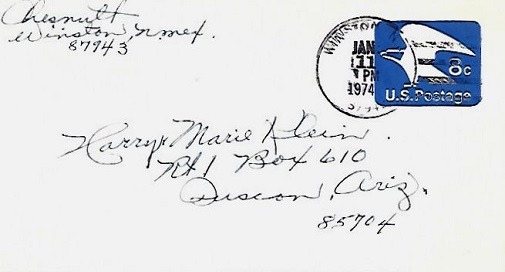 Chesnutt
Winston, N.Mex.
87943
WINSTON
JAN
11
PM
1974
8c
U.S. Postage
Harry & Marie Klein
Rt 1 Box 610
Tucson, Ariz.
85704